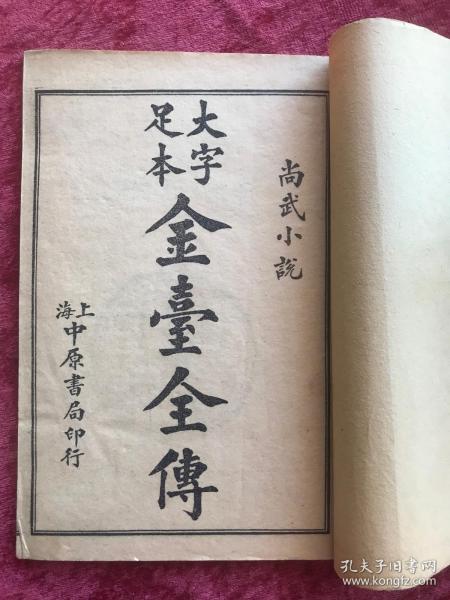 尚武小説
大字足本
金臺全傳
上海中原書局印行
孔夫子旧书网
www.kongfz.com